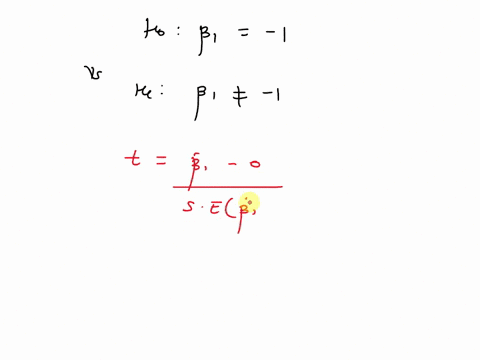 H₀ : β₁ = -1
Vs
H₁ : β₁ ≠ -1
t = β̂₁ - 0
S.E(β̂₁